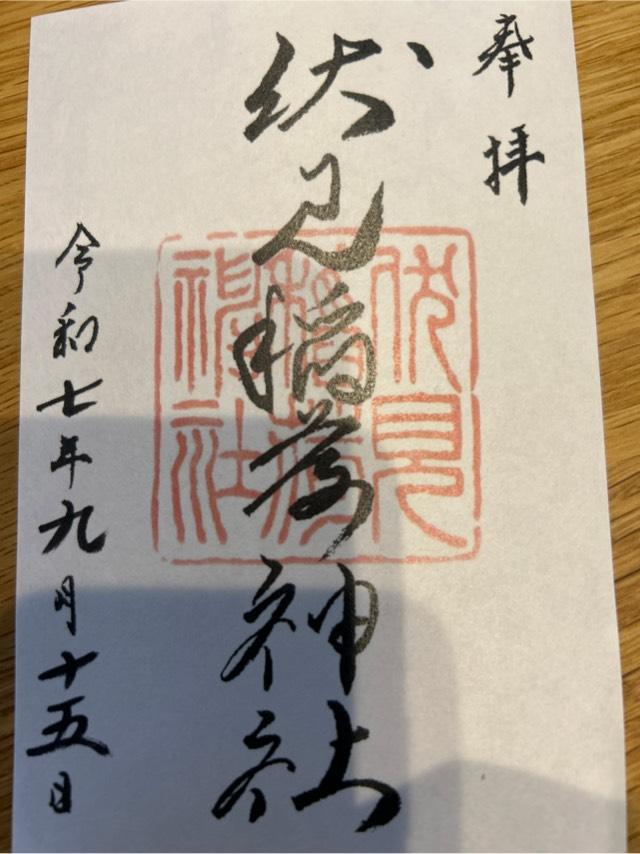 奉拝
伏見稲荷神社
伏見
稲荷
神社
令和七年九月十五日